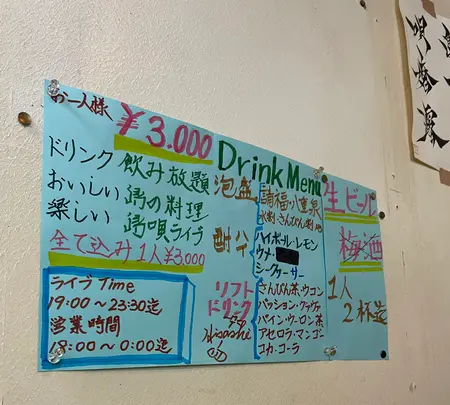 お一人様
¥3.000
ドリンク 飲み放題
おいしい 島の料理
楽しい 島唄ライブ
全て込み1人¥3.000
ライブTime
19:00〜23:30迄
営業時間
18:00〜0:00迄
Drink Menu
泡盛
請福・八重泉
水割・さんぴん割・他
酎ハイ
ハイボール・レモン
ウメ・
シークヮーサー
ソフト
ドリンク
さんぴん茶・ウコン
パッション・グァヴァ
パイン・ウーロン茶
アセロラ・マンゴー
コカ・コーラ
Hisashi
生ビール
梅酒
1人
2杯迄